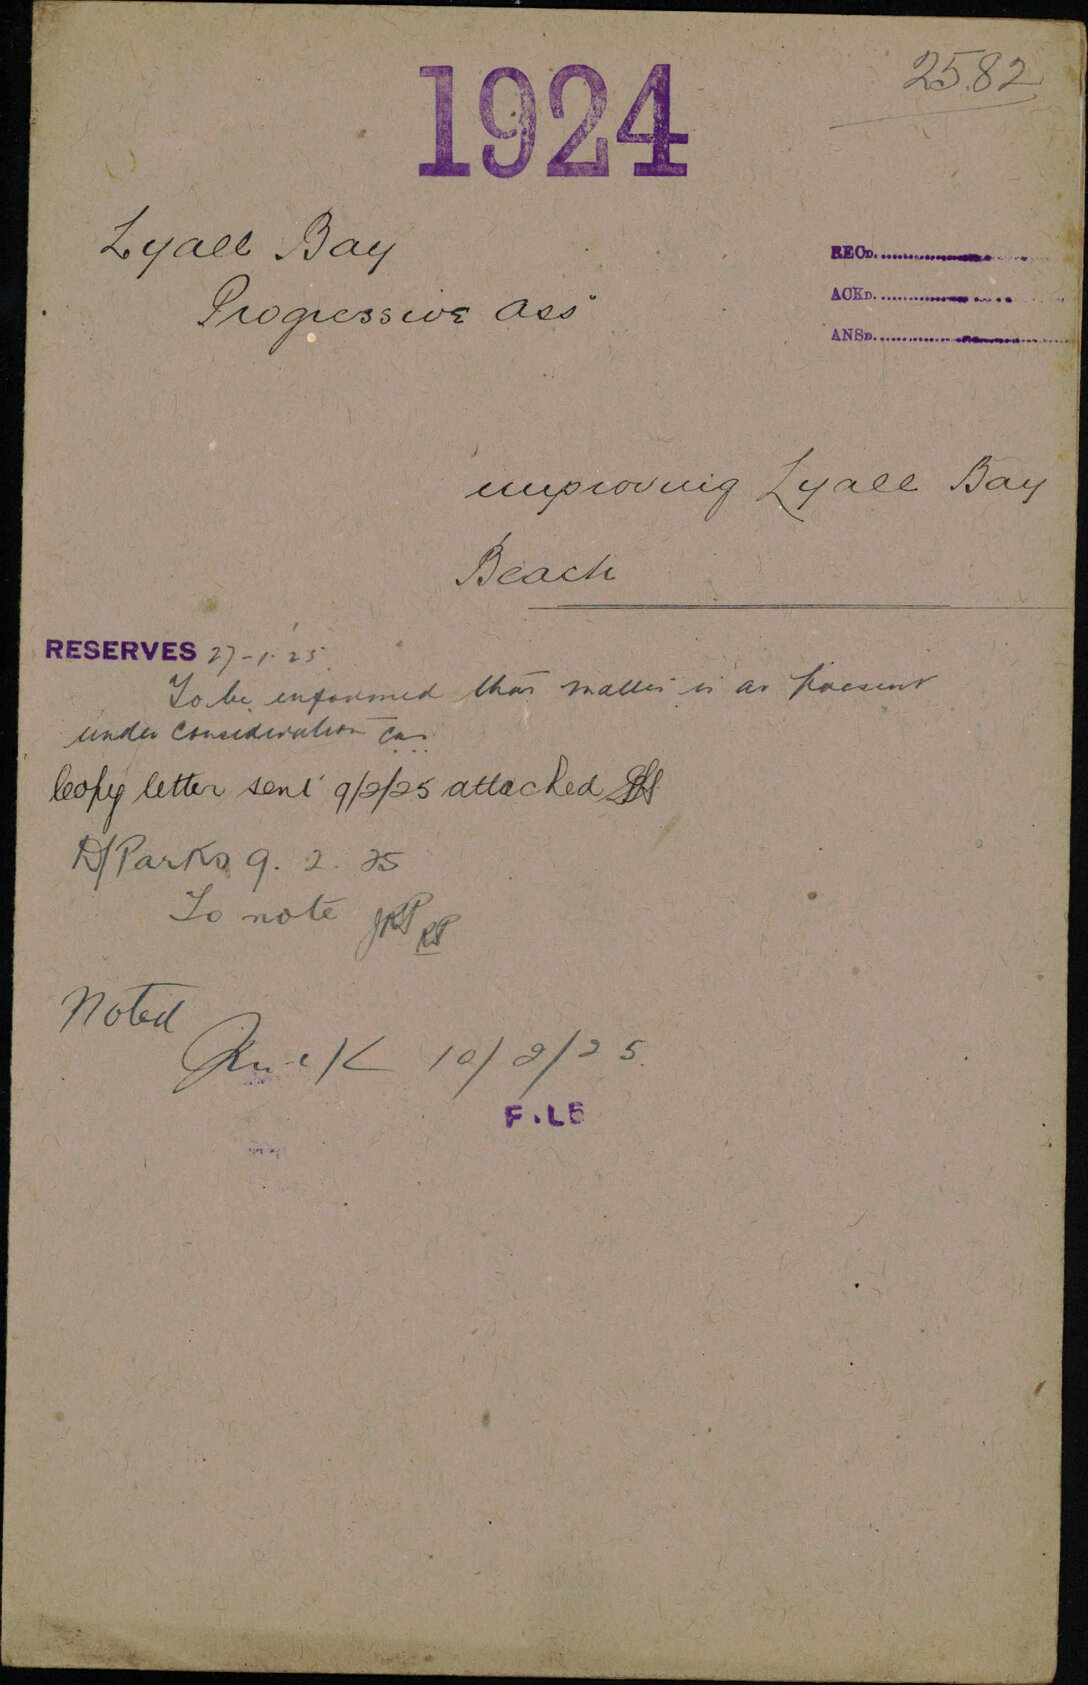 1924
2582
Lyall Bay
Progressive Ass
RECD.
ACKD.
ANSD.
improving Lyall Bay
Beach
RESERVES 27-1-25
To be informed that matter is at present
under consideration
Copy letter sent 9/2/25 attached
D/Parks 9.2.25
To note
Noted
10/2/25.
F.LE